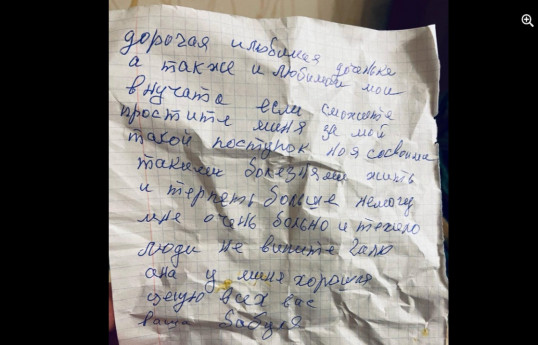 дорочая и любимая доченька
а так же и любимаи мои
внучата если сможите
простите миня за мой
такой поступок но я сосвоими
такими болезнями жить
и терпеть больше немогу
мне очень больно и тежало
люди не вините Галю
она у миня хорошая
целую всех вас
ваша бабуля